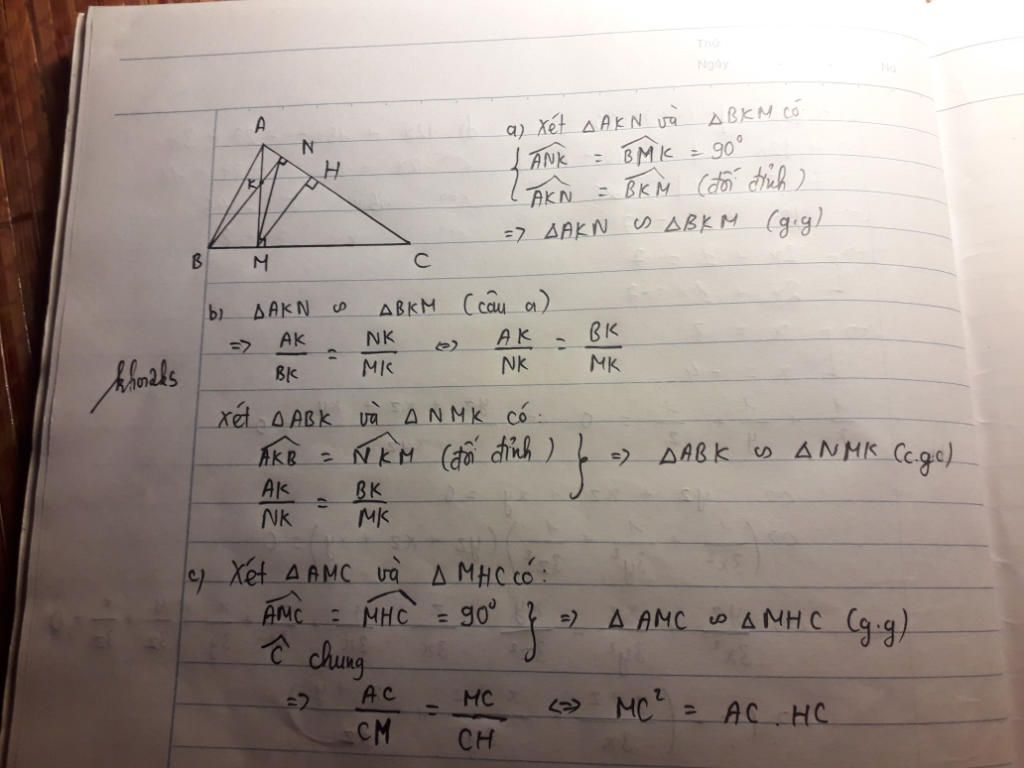 Thứ
Ngày No
A
N
H
K
B M C
a) Xét ΔAKN và ΔBKM có
{ \widehat{ANK} = \widehat{BMK} = 90°
\widehat{AKN} = \widehat{BKM} (đối đỉnh)
=> ΔAKN ∽ ΔBKM (g.g)
b) ΔAKN ∽ ΔBKM (câu a)
=> AK/BK = NK/MK <=> AK/NK = BK/MK
khoa2k5
Xét ΔABK và ΔNMK có:
\widehat{AKB} = \widehat{NKM} (đối đỉnh) } => ΔABK ∽ ΔNMK (c.g.c)
AK/NK = BK/MK
c) Xét ΔAMC và ΔMHC có:
\widehat{AMC} = \widehat{MHC} = 90° } => ΔAMC ∽ ΔMHC (g.g)
\widehat{C} chung
=> AC/CM = MC/CH <=> MC² = AC . HC